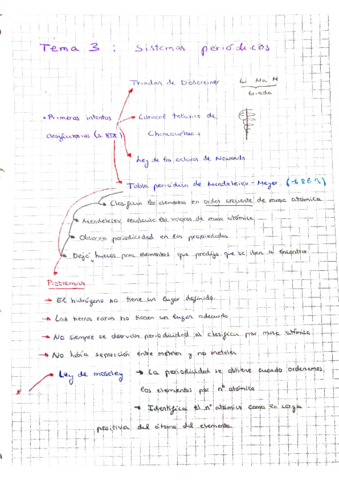 Tema 3 : Sistemas periódicos
Triadas de Döbereiner
Li Na K
triada
• Primeros intentos
clasificatorios (s. XIX)
Caracol telúrico de
Chancourtois
Ley de las octavas de Newlands
Tabla periódica de Mendeleiev - Meyer (1869)
→ Clasifican los elementos en orden creciente de masa atómica
→ Mendeleiev los valores de masa atómica
→ Observa periodicidad en las propiedades
→ Dejó huecos para elementos que predijo que se iban a encontrar
Problemas
→ El hidrógeno no tiene un lugar definido.
→ Las tierras raras no tienen un lugar adecuado
→ No siempre se observa periodicidad al clasificar por masa atómica
→ No había separación entre metales y no metales
Ley de moseley
→ La periodicidad se obtiene cuando ordenamos
los elementos por nº atómico
→ Identifica el nº atómico como la carga
positiva del átomo del elemento.